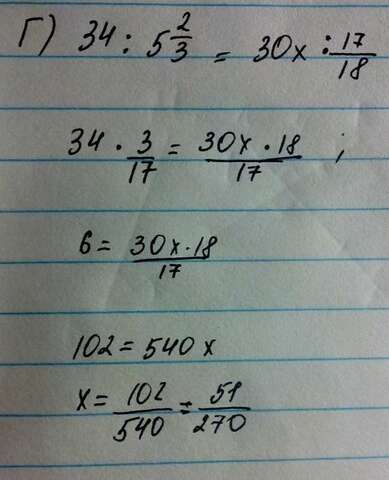 Г) 34 : 5 2/3 = 30x : 17/18
34 · 3/17 = 30x · 18/17 ;
6 = 30x · 18/17
102 = 540x
x = 102/540 = 51/270